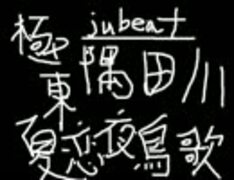 jubeat
極東
隅田川
夏恋夜鳥歌